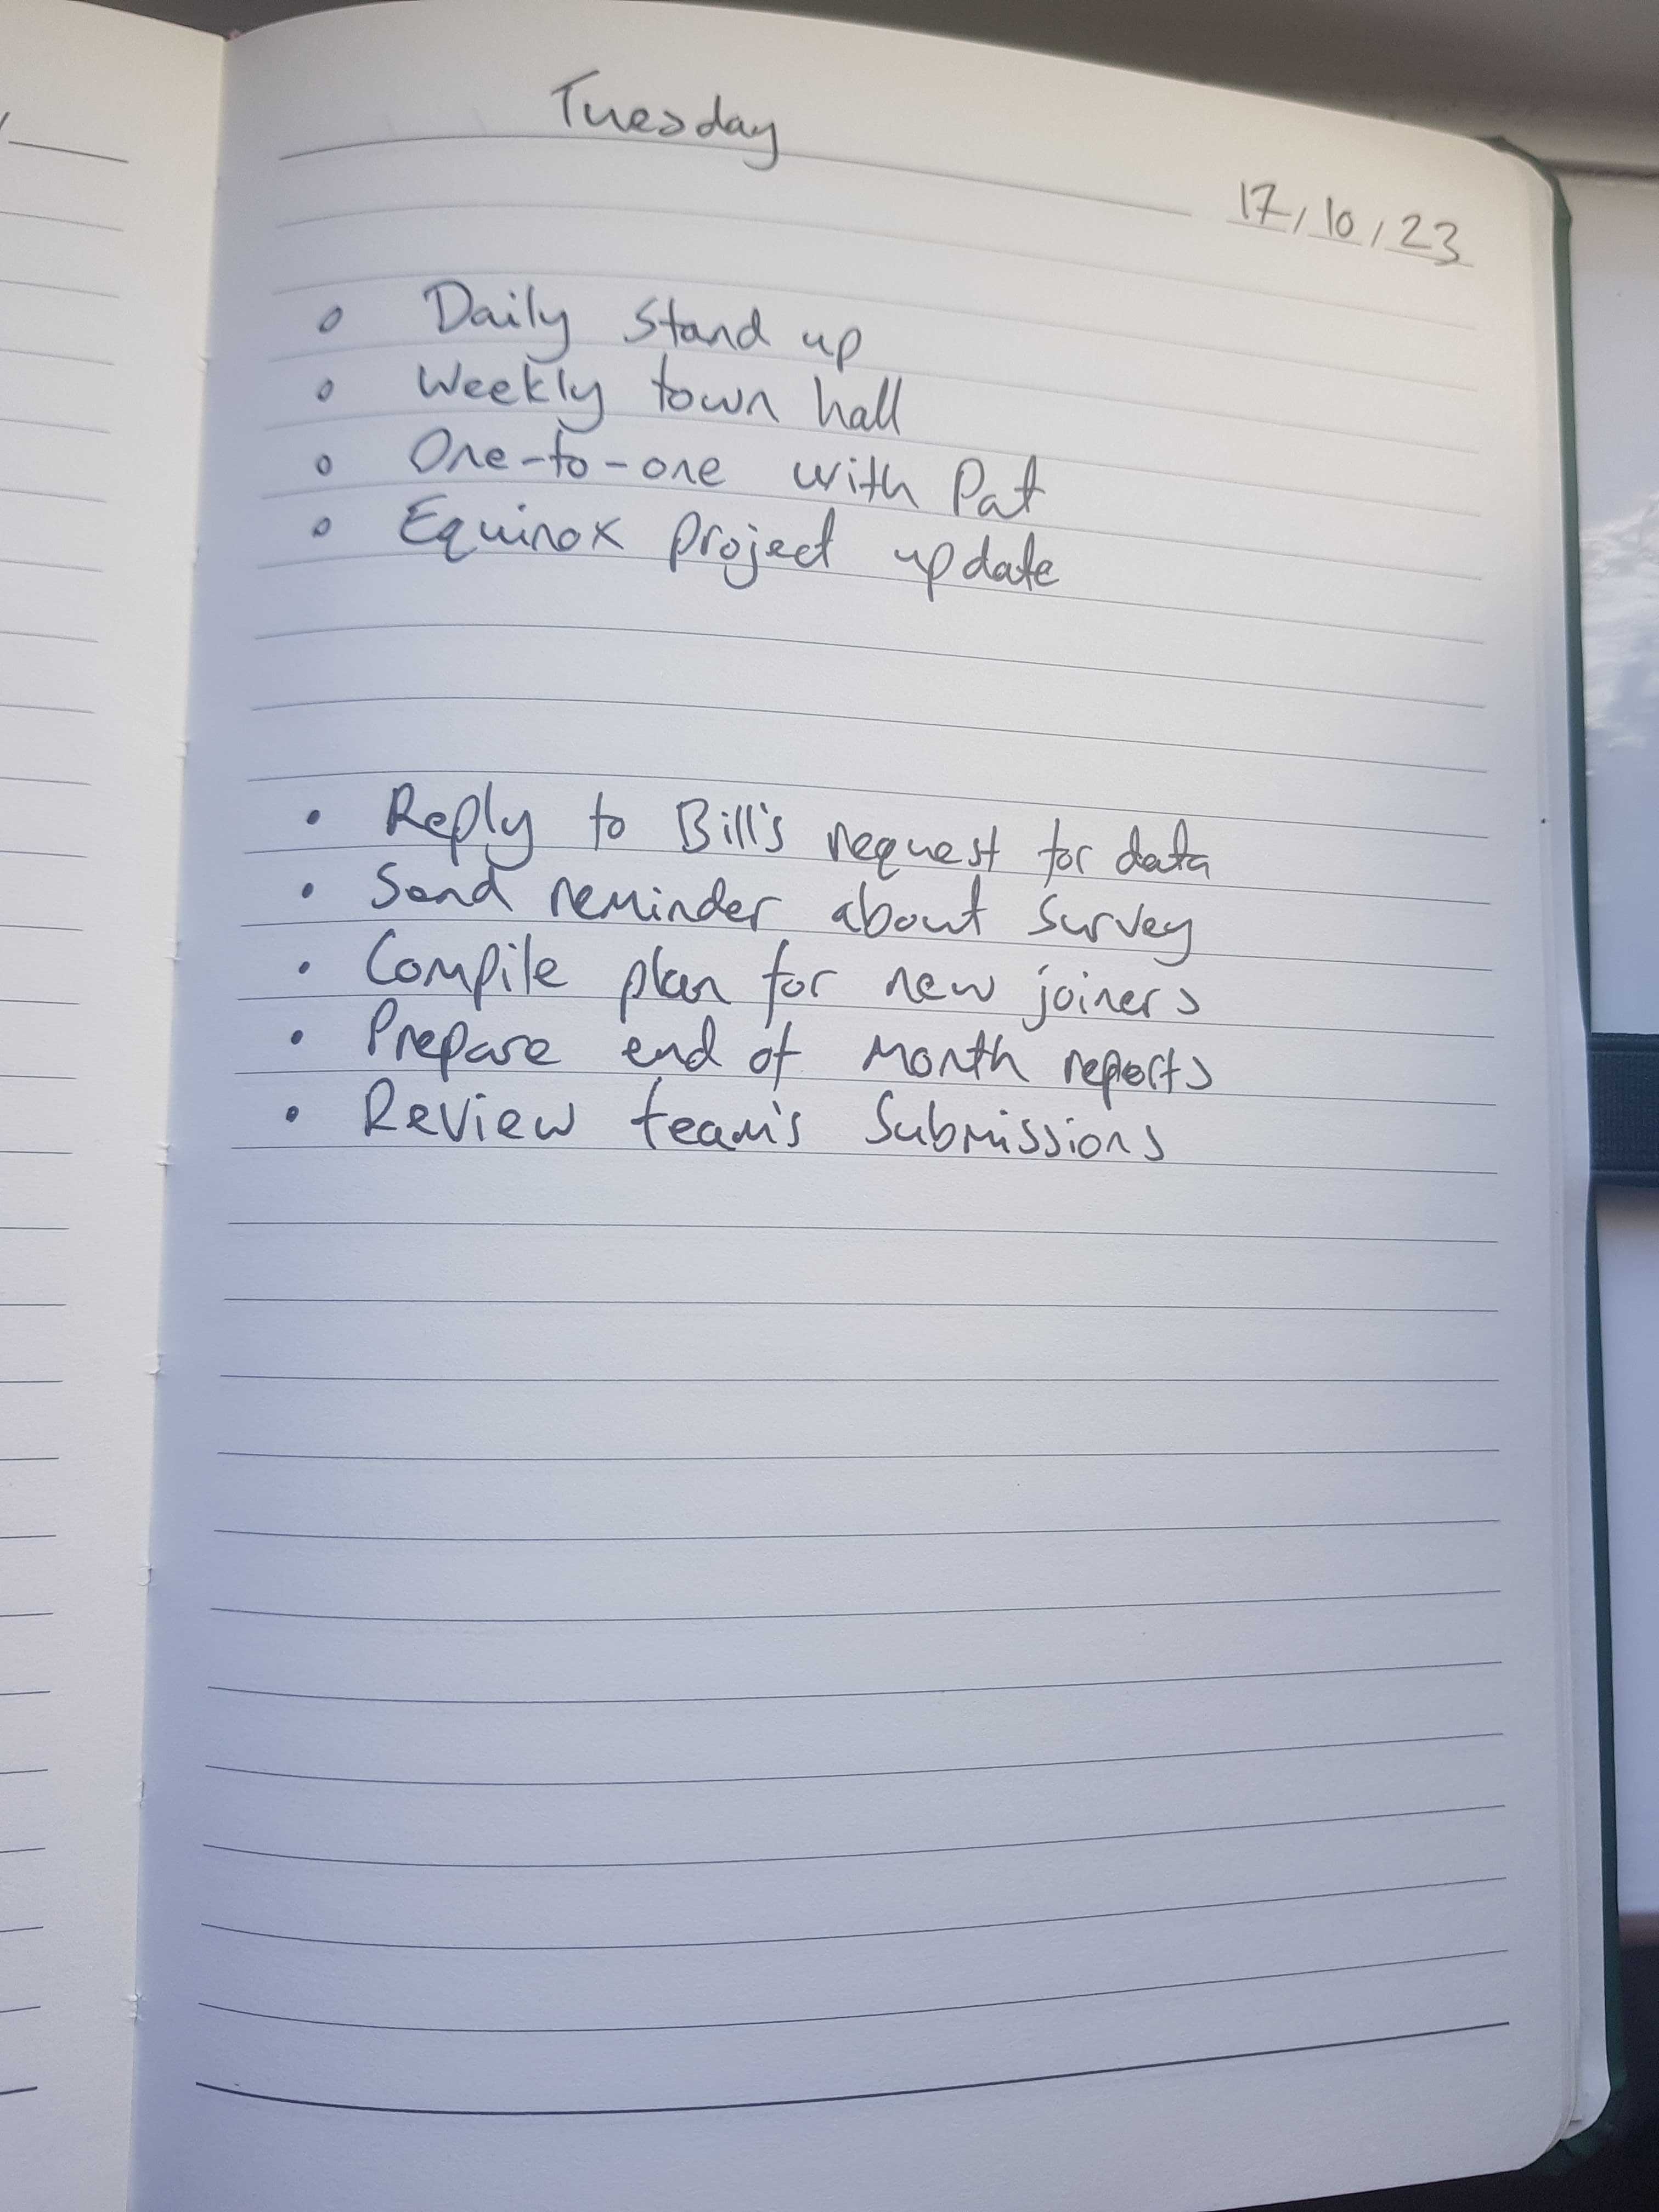 Tuesday
17/10/23
° Daily stand up
° Weekly town hall
° One-to-one with Pat
° Equinox project update
• Reply to Bill's request for data
• Send reminder about survey
• Compile plan for new joiners
• Prepare end of month reports
• Review team's submissions